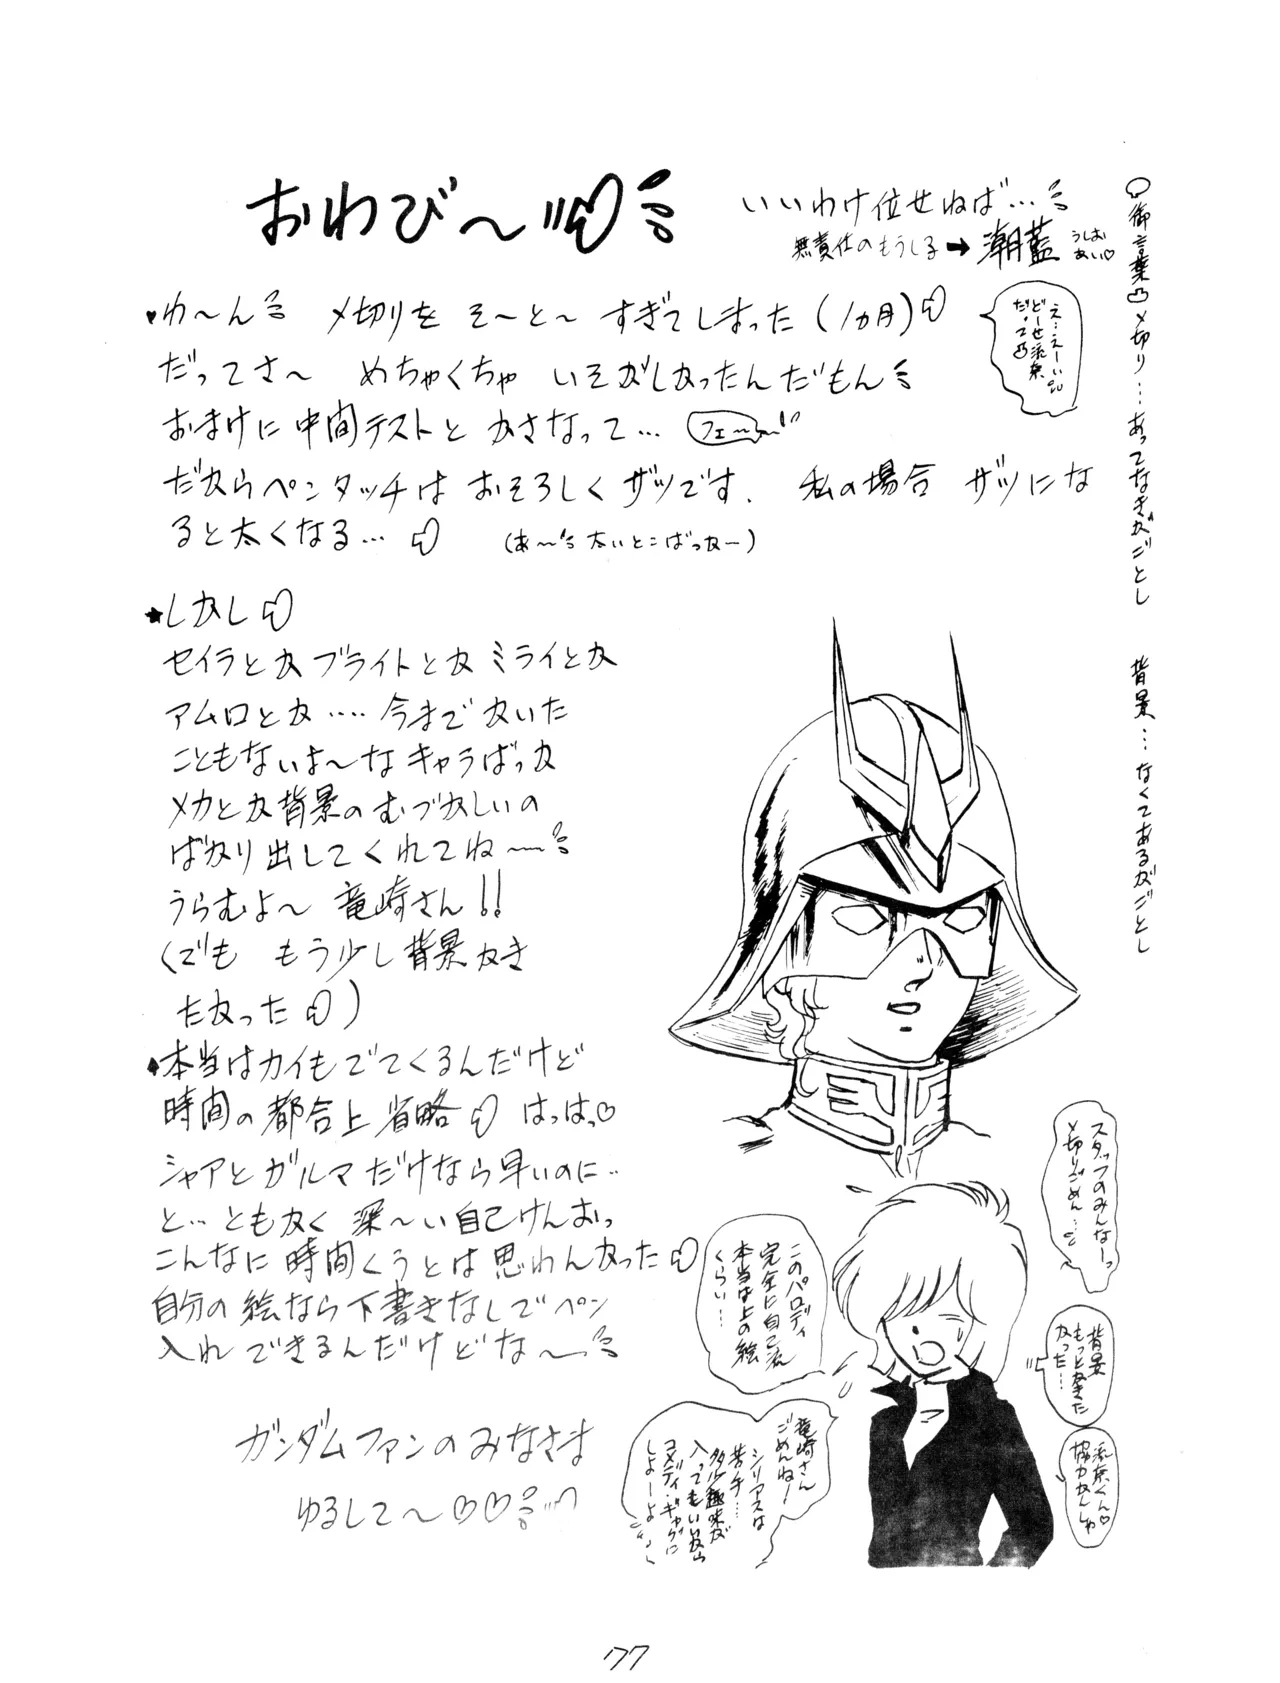 おわび〜
いいわけ位せねば…
無責任のもうしる➡潮藍 うしお あい♡
御言葉 〆切り…あってなきがごとし 背景…なくてあるがごとし
え…えーい
どーせ流奈
だってゆ〜ん 〆切りを そ〜と〜 すぎてしまった (1ヵ月)
だってさ〜 めちゃくちゃ いそがしかったんだもん
おまけに中間テストと かさなって… フェ〜
だからペンタッチは おそろしくザツです. 私の場合 ザツにな
ると太くなる… (あ〜太いとこばっかー)
★しかし
セイラとか ブライトとか ミライとか
アムロとか‥‥今までかいた
こともないよ〜なキャラばっか
メカとか背景のむづかしいの
ばかり出してくれてね〜
うらむよ〜 竜崎さん!!
(でも もう少し背景かき
たかった)
◆本当はカイもでてくるんだけど
時間の都合上省略 はっはっ♡
シャアとガルマだけなら早いのに‥
と…ともかく 深〜い自己けんおっ
こんなに時間くうとは思わんかった
自分の絵なら下書きなしでペン
入れできるんだけどな〜
ガンダムファンのみなさま
ゆるして〜♡♡
スタッフのみんなーっ
〆切りごめん…
このパロディ
完全に自己流
本当は上の絵
くらい…
背景
もっとかきた
かった…
流奈くん♡
協力かんしゃ
竜崎さん
ごめんね!
シリアスは
苦手…
多少趣味が
入ってもいいから
コメディ・ギャグに
しよーよ
77